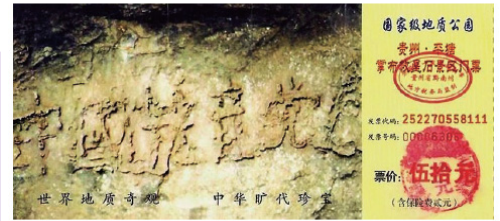 中國共产党
世界地质奇观 中华旷代珍宝
国家级地质公园
贵州·平塘
掌布
景区门票
发票代码:252270558111
发票号码:
票价:伍拾元
(含保险费贰元)